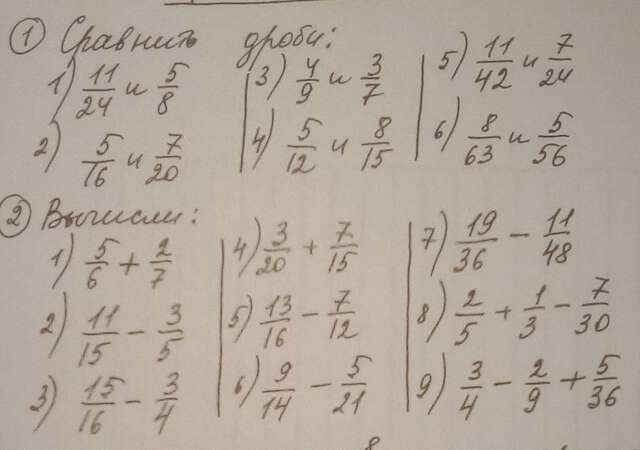 ① Сравнить дроби:
1) 11/24 и 5/8
2) 5/16 и 7/20
3) 4/9 и 3/7
4) 5/12 и 8/15
5) 11/42 и 7/24
6) 8/63 и 5/56
② Вычисли:
1) 5/6 + 2/7
2) 11/15 - 3/5
3) 15/16 - 3/4
4) 3/20 + 7/15
5) 13/16 - 7/12
6) 9/14 - 5/21
7) 19/36 - 11/48
8) 2/5 + 1/3 - 7/30
9) 3/4 - 2/9 + 5/36